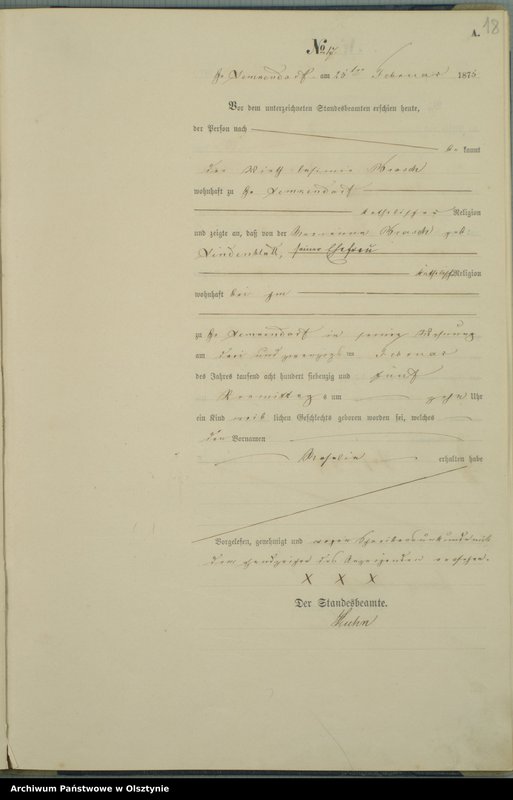 18
A.
No 17
Gr. am 25ten Februar 1875
Vor dem unterzeichneten Standesbeamten erschien heute,
der Person nach
be kannt
der Wirth Casimir
wohnhaft zu Gr.
katholischer Religion
und zeigte an, daß von der geb.
Lindenblatt, seiner Ehefrau
katholisch Religion
wohnhaft bei ihm
zu Gr. in seiner Wohnung
am drei und zwanzigsten Februar
des Jahres tausend acht hundert siebenzig und fünf
Vormittags um zehn Uhr
ein Kind weib lichen Geschlechts geboren worden sei, welches
den Vornamen
Rosalia erhalten habe
Vorgelesen, genehmigt und wegen Schreibensunkunde mit
dem Handzeichen des Anzeigenden versehen.
X X X
Der Standesbeamte.
Archiwum Państwowe w Olsztynie